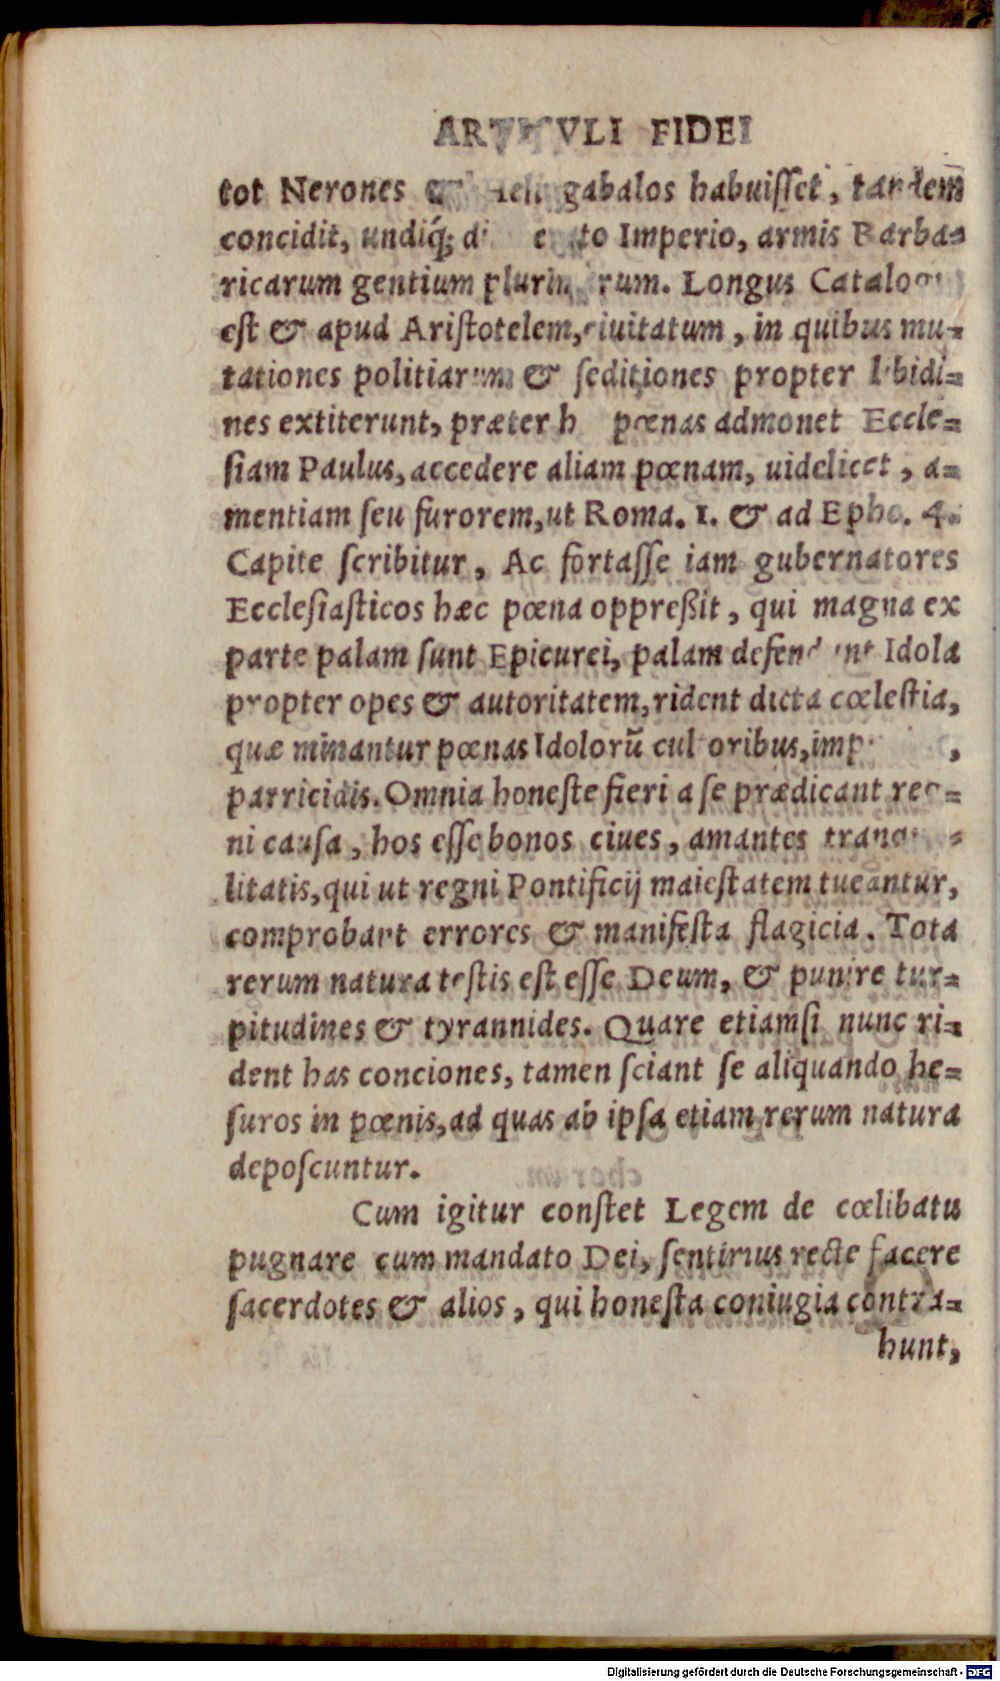 ARTICVLI FIDEI
tot Nerones & gabalos habuisset, tandem
concidit, undiq́; Imperio, armis Barba-
ricarum gentium plurimarum. Longus Catalogus
est & apud Aristotelem, ciuitatum, in quibus mu-
tationes politiarum & seditiones propter libidi-
nes extiterunt, præter pœnas admonet Eccle-
siam Paulus, accedere aliam pœnam, uidelicet, a-
mentiam seu furorem, ut Roma. 1. & ad Ephe. 4.
Capite scribitur, Ac fortasse iam gubernatores
Ecclesiasticos hæc pœna oppreßit, qui magna ex
parte palam sunt Epicurei, palam defendunt Idola
propter opes & autoritatem, rident dicta cœlestia,
quæ minantur pœnas Idolorũ cultoribus,
parricidis. Omnia honeste fieri a se prædicant reg-
ni causa, hos esse bonos ciues, amantes tranqui-
litatis, qui ut regni Pontificij maiestatem tueantur,
comprobant errores & manifesta flagicia. Tota
rerum natura testis est esse Deum, & punire tur-
pitudines & tyrannides. Quare etiamsi nunc ri-
dent has conciones, tamen sciant se aliquando he-
suros in pœnis, ad quas ab ipsa etiam rerum natura
deposcuntur.
Cum igitur constet Legem de cœlibatu
pugnare cum mandato Dei, sentimus recte facere
sacerdotes & alios, qui honesta coniugia contra-
hunt,
Digitalisierung gefördert durch die Deutsche Forschungsgemeinschaft - DFG